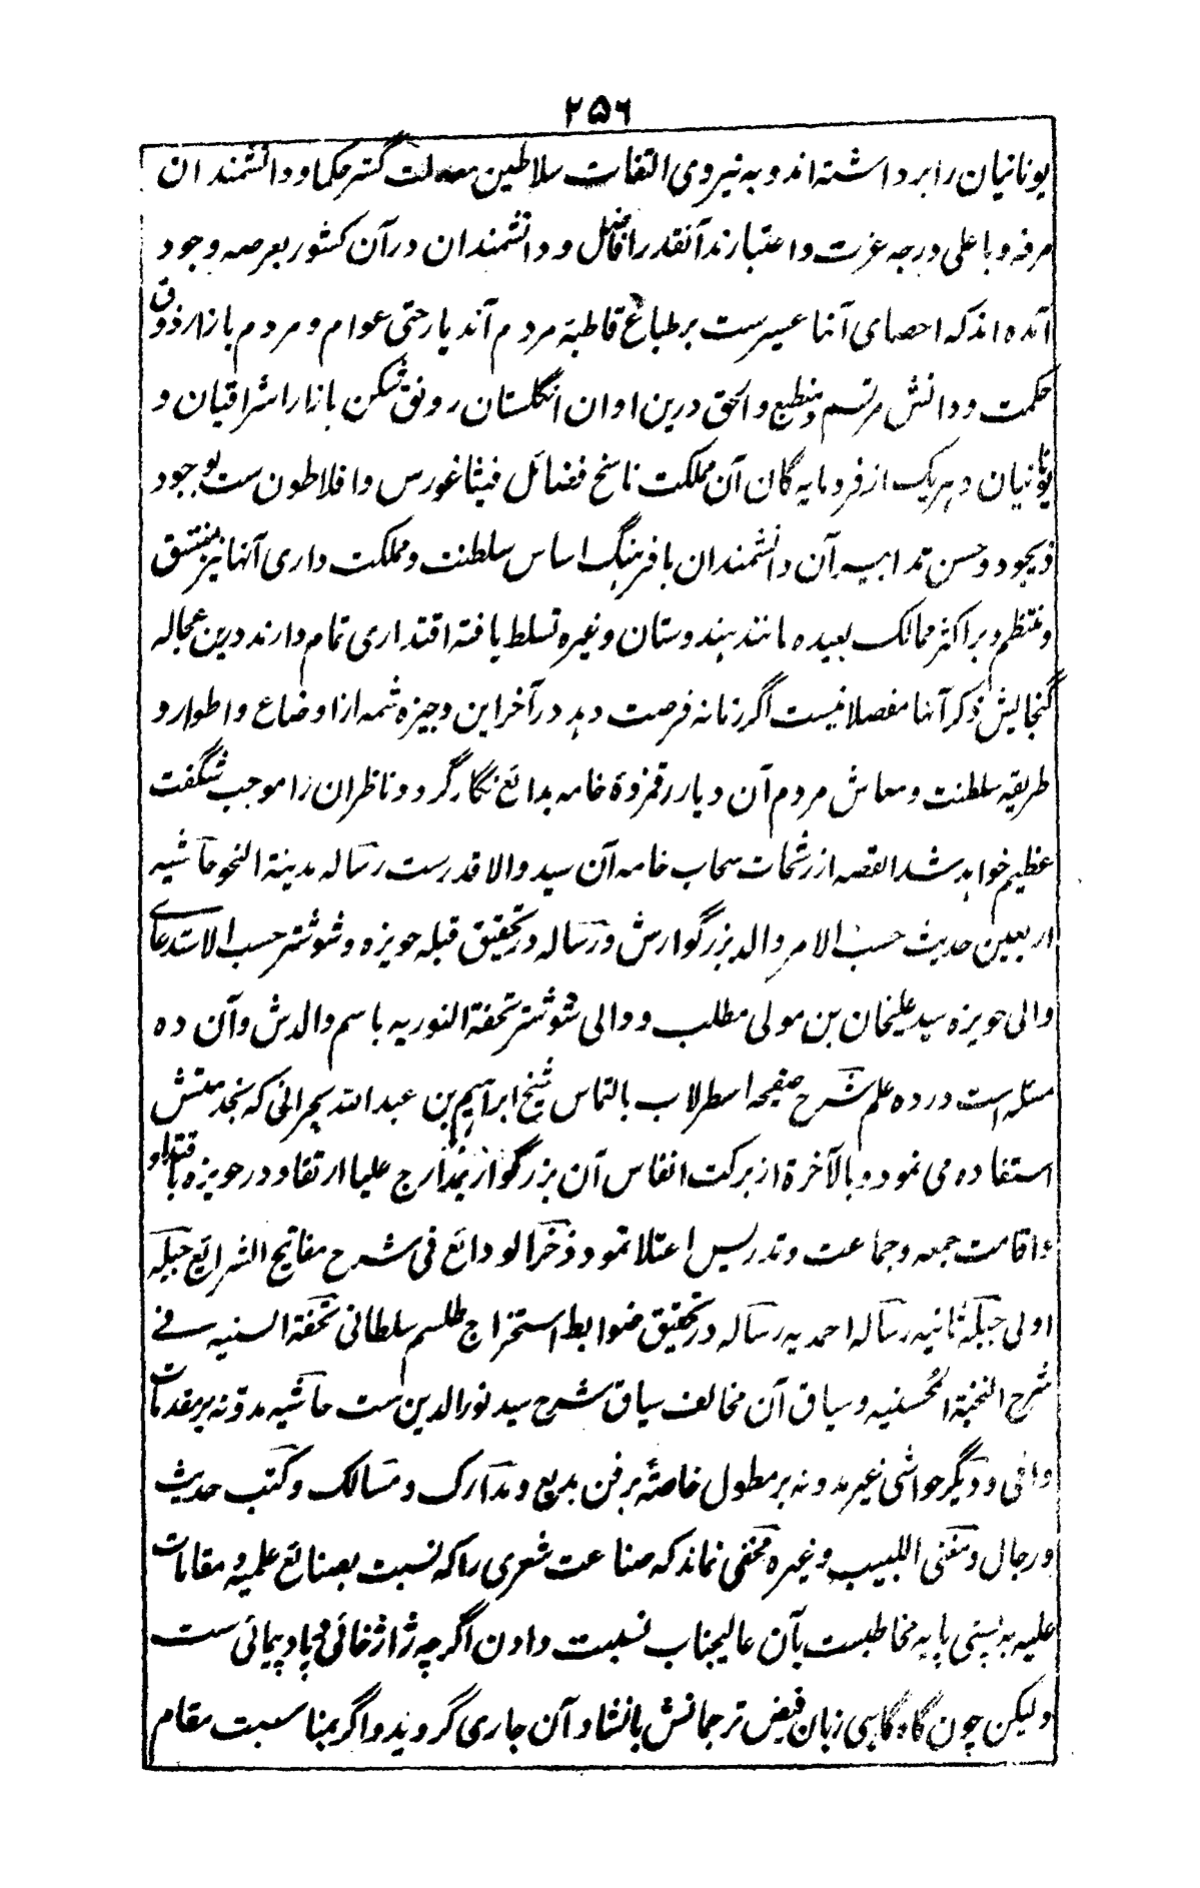 ۲۵۶
یونانیان را برداشته اند و به نیروی التفات سلاطین معدلت گستر حکما و دانشمندان
مرفه و باعلی درجه عزت و اعتبارند آنقدر افاضل و دانشمندان در آن کشور بعرصه وجود
آمده اند که احصای آنها عسیرست بر طباع قاطبهٔ مردم آندیار حتی عوام و مردم بازار ذوق
حکمت و دانش مرتسم و منطبع و الحق درین اوان انگلستان رونق شکن بازار اشراقیان و
یونانیان و هریک از فرومایه گان آن مملکت ناسخ فضائل فیثاغورس و افلاطون ست بوجود
ذیجود و حسن تدابیر آن دانشمندان بافرهنگ اساس سلطنت و مملکت داری آنها نیز منتسق
و منتظم و بر اکثر ممالک بعیده مانند هندوستان و غیره تسلط یافته اقتداری تمام دارند درین عجاله
گنجایش ذکر آنها مفصلا نیست اگر زمانه فرصت دهد در آخر این وجیزه شمه از اوضاع و اطوار و
طریقه سلطنت و معاش مردم آن دیار رقمزدهٔ خامه بدائع نگار گردد ناظران را موجب شگفت
عظیم خواهد شد القصه از رشحات سحاب خامه آن سید والاقدرست رساله مدینة النحو حاشیه
اربعین حدیث حسب الامر والد بزرگوارش و رساله در تحقیق قبله حویزه و شوشتر حسب الاستدعای
والی حویزه سید علیخان بن مولی مطلب و والی شوشتر تحفة النوریه باسم والدش و آن ده
مسئله است در ده علم شرح صفیحه اسطرلاب بالتماس شیخ ابراهیم بن عبدالله بحرانی که بخدمتش
استفاده می نمود و بالآخرة از برکت انفاس آن بزرگوار بمدارج علیا ارتقا و در حویزه باقتدا و
و اقامت جمعه و جماعت و تدریس اعتلا نمود ذخر الودائع فی شرح مفاتیح الشرائع جبلیه
اولی جبلیه ثانیه رساله احمدیه رساله در تحقیق ضوابط استخراج طلسم سلطانی تحفة السنیه فے
شرح النخبة المحسنیه و سیاق آن مخالف سیاق شرح سید نورالدین ست حاشیه مدونه بر مقدمات
وافی و دیگر حواشی غیر مدونه بر مطول خاصهٔ بر فن بدیع و مدارک و مسالک و کتب حدیث
و رجال و مغنی اللبیب و غیره مخفی نماند که صناعت شعری را که نسبت بصنائع علمیه و مقامات
علیه به پستی پایه مخاطبست بآن عالیجناب نسبت دادن اگرچه ژاژخائی و بادپیمائی ست
ولیکن چون گاه گاهی زبان فیض ترجمانش بانشاد آن جاری گردیده و اگر بمناسبت مقام